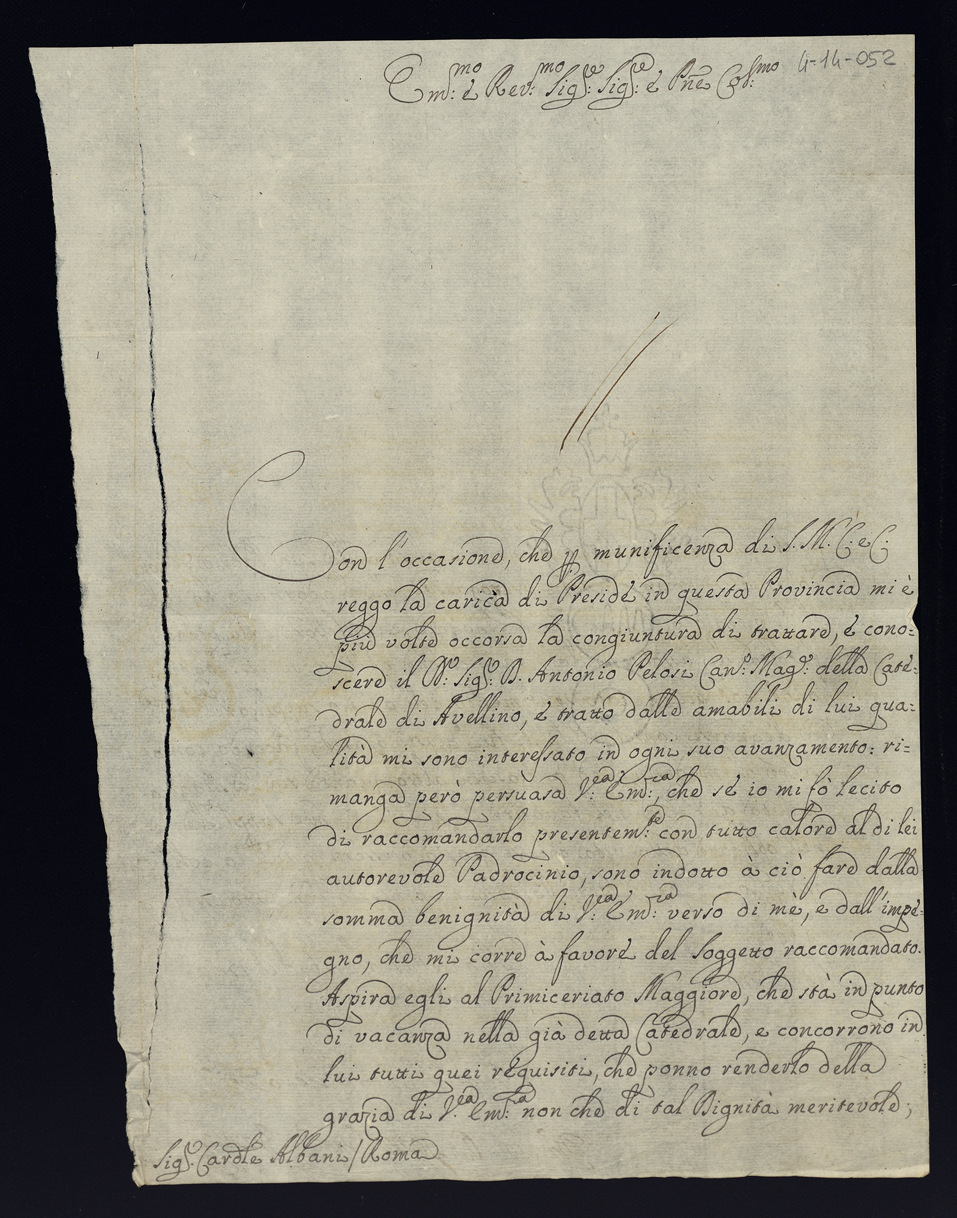 4-14-052
Em:mo è Rev:mo Sig:re Sig:re è Pñe Col:mo
Con l'occasione, che p munificenza di S. M. C. e C.
reggo la carica di Preside in questa Provincia mi è
più volte occorsa la congiuntura di trattare, è cono=
scere il Sig:r D. Antonio Pelosi Can:co Mag:re della Cate=
drale di Avellino, è tratto dalle amabili di lui qua=
lità mi sono interessato in ogni suo avanzamento: ri=
manga però persuasa V:ra Em:za, che se io mi fò lecito
di raccomandarlo presentem:te con tutto calore al di lei
autorevole Padrocinio, sono indotto à ciò fare dalla
somma benignità di V:ra Em:za verso di mè, e dall'impe=
gno, che mi corre à favore del Soggetto raccomandato.
Aspira egli al Primiceriato Maggiore, che stà in punto
di vacanza nella già detta Catedrale, e concorrono in
lui tutti quei requisiti, che ponno renderlo della
grazia di V:ra Em:za non che di tal Dignità meritevole;
Sig:r Cardle Albani / Roma